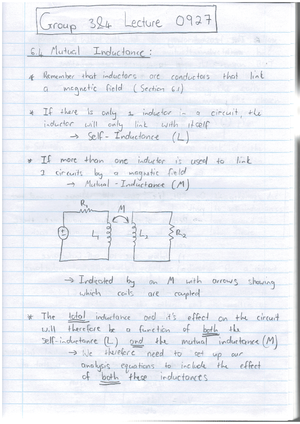 Group 3&4 Lecture 0927
6.4 Mutual Inductance:
* Remember that inductors are conductors that link
a magnetic field (Section 6.1)
* If there is only 1 inductor in a circuit, the
inductor will only link with itself
→ Self-Inductance (L)
* If more than one inductor is used to link
2 circuits by a magnetic field
→ Mutual-Inductance (M)
R₁ M
L₁ L₂ R₂
→ Indicated by an M with arrows showing
which coils are coupled
* The total inductance and it's effect on the circuit
will therefore be a function of both the
self-inductance (L) and the mutual inductance (M)
→ We therefore need to set up our
analysis equations to include the effect
of both these inductances